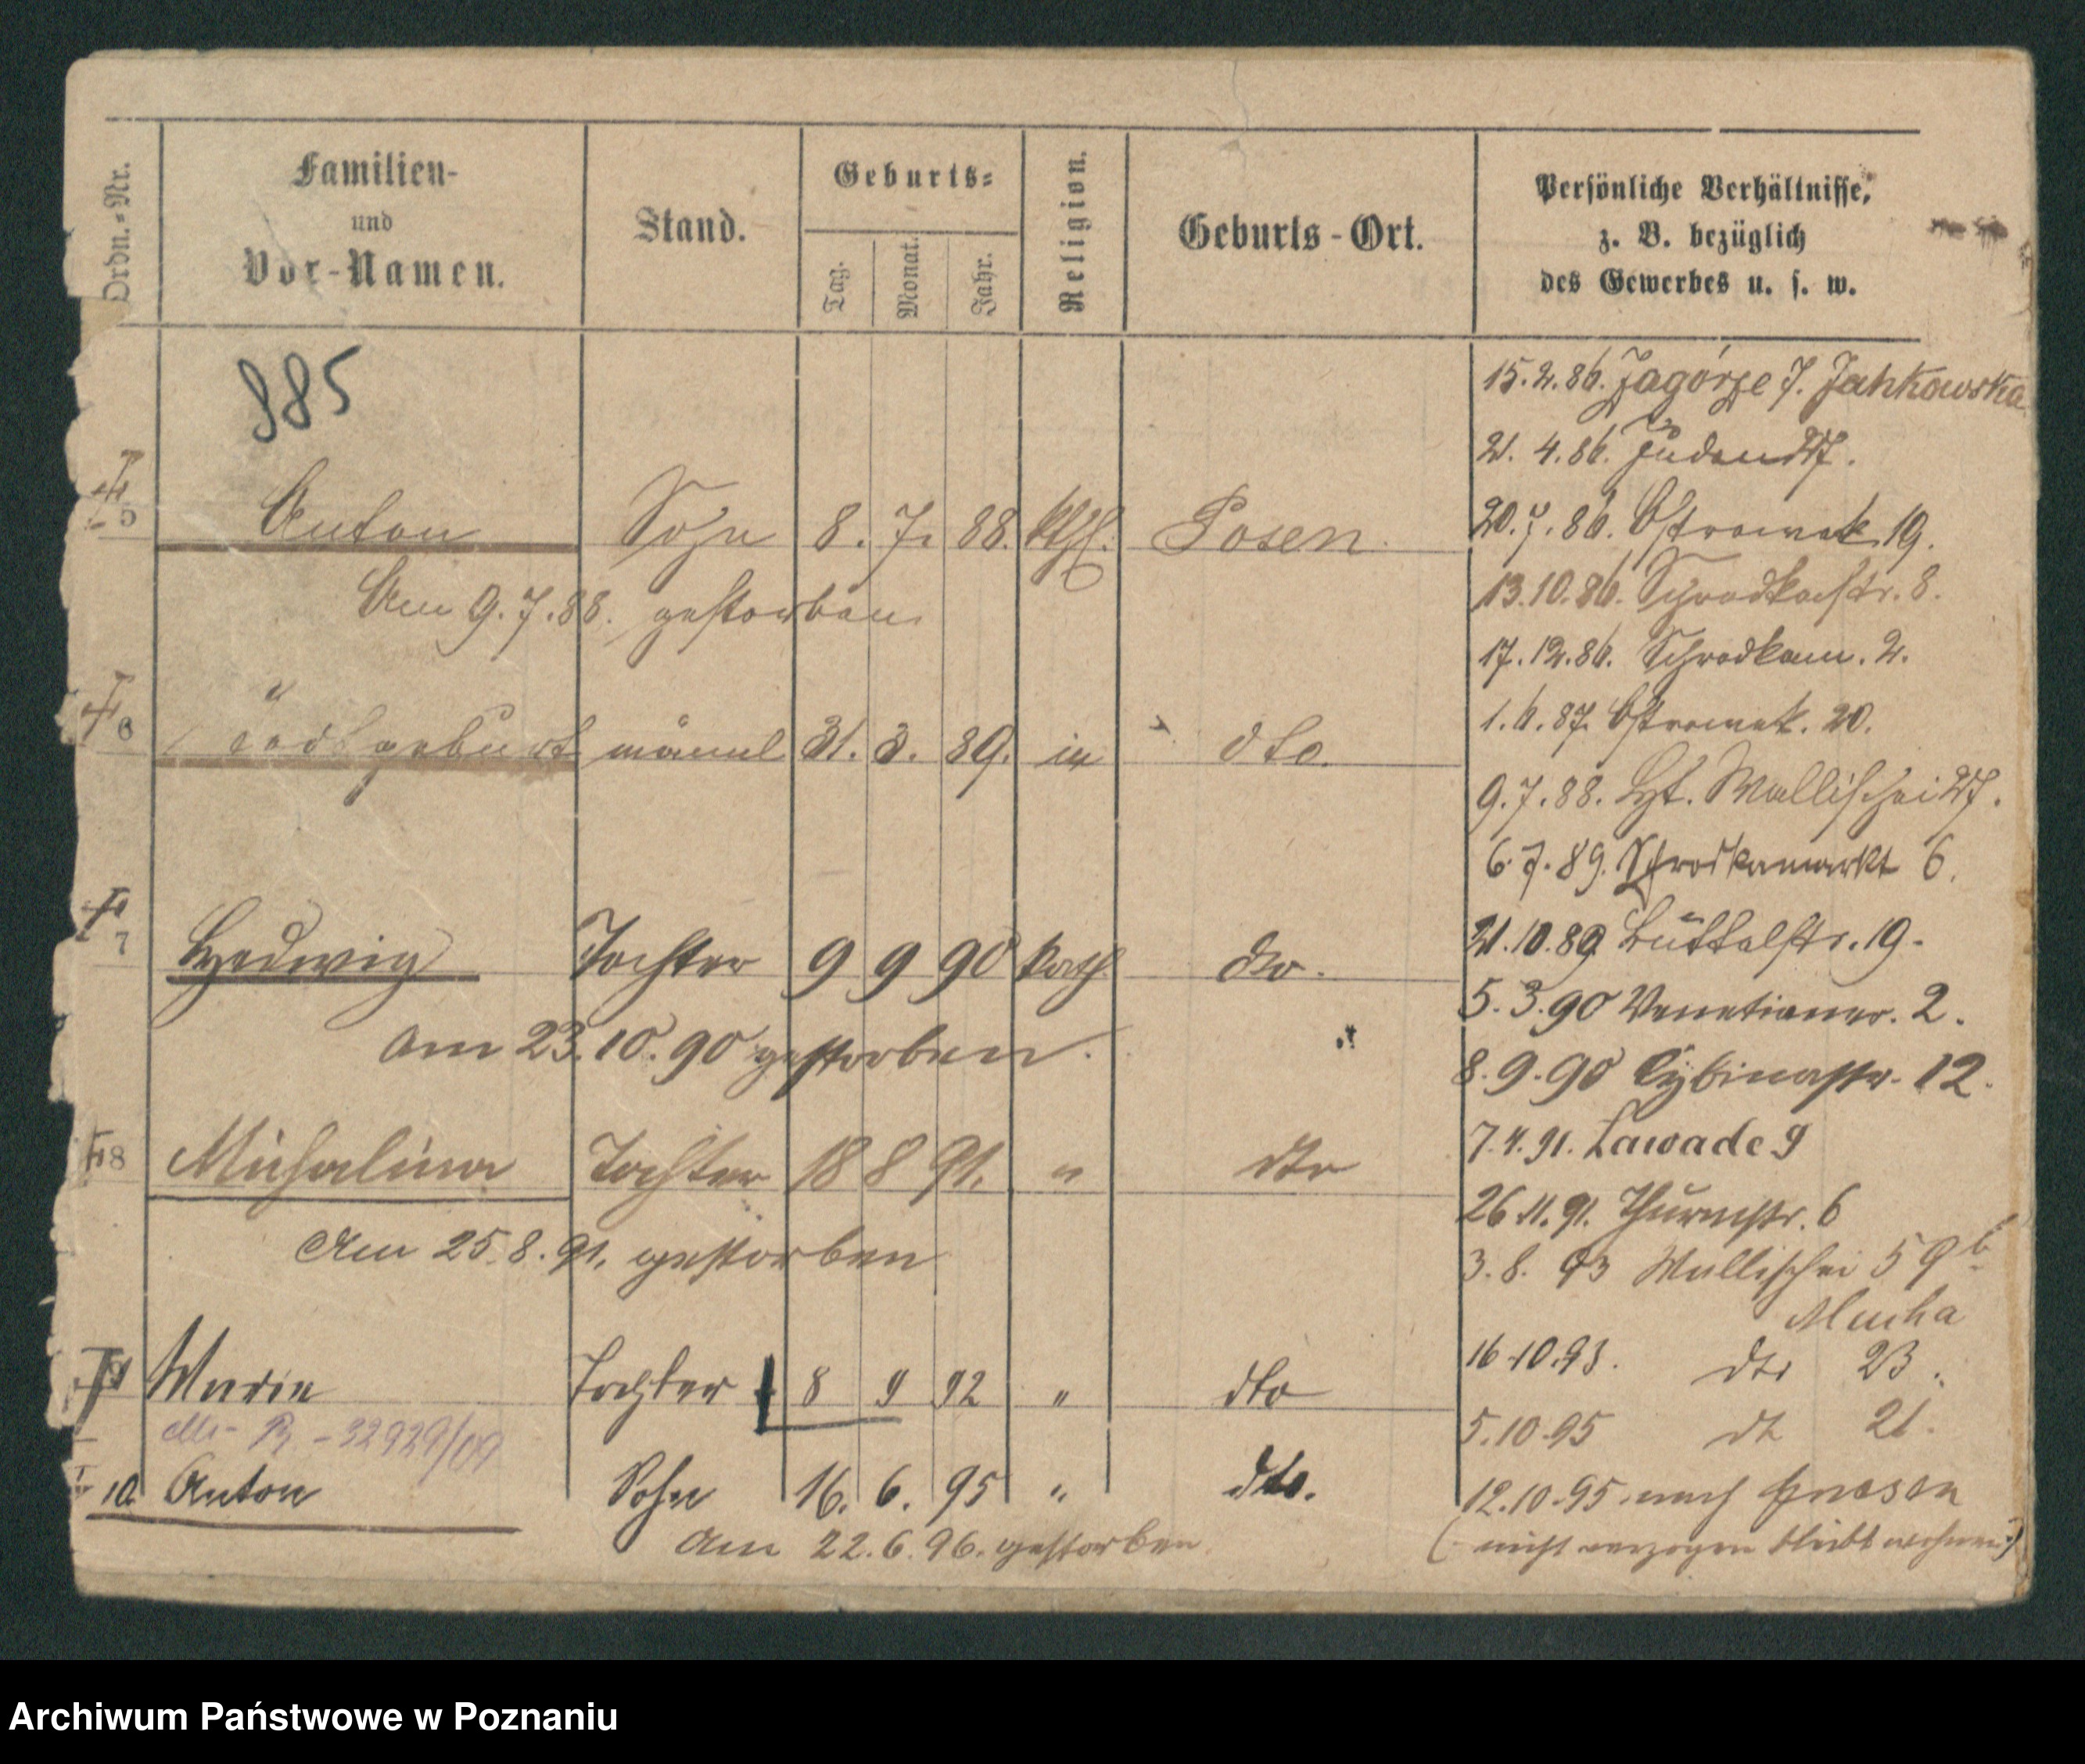 Ordn.=Nr.
Familien-
und
Vor-Namen.
Stand.
Geburts=
Tag.
Monat.
Jahr.
Religion.
Geburts-Ort.
Persönliche Verhältnisse,
z. B. bezüglich
des Gewerbes u. s. w.
885
5 Anton Sohn 8. 7. 88. kth. Posen.
Am 9.7.88. gestorben
6 Todtgeburt männl 31. 3. 89. dto.
7 Hedwig Tochter 9 9 90 kath dto.
am 23.10.90 gestorben.
8 Michalina Tochter 18 8 91. " dto
Am 25.8.91. gestorben
9 Marie Tochter 8 9 92 " dto
32929/09
10 Anton Sohn 16. 6. 95 " dto.
am 22.6.96. gestorben
15.2.86. Zagórze 7. Jahkowska
21. 4.86. Juden 27.
20.7.86. Ostrowek 19.
13.10.86. Schrodkastr. 8.
17.12.86. Schrodkam. 2.
1.6.87. Ostrowek. 20.
9.7.88. Ht. Wallischei 27.
6.7.89. Schrodkamarkt 6.
21.10.89 Büttelstr. 19.
5.3.90 Venetianer. 2.
8.9.90 Cybinastr. 12.
7.4.91. Zawade 9
26.11.91. Thurmstr. 6
3.8.93 Wallischei 59b
Mucha
16.10.93. dto 23.
5.10.95 dt 21.
12.10.95 nach Gnesen
(nicht verzogen bleibt wohnen)
Archiwum Państwowe w Poznaniu